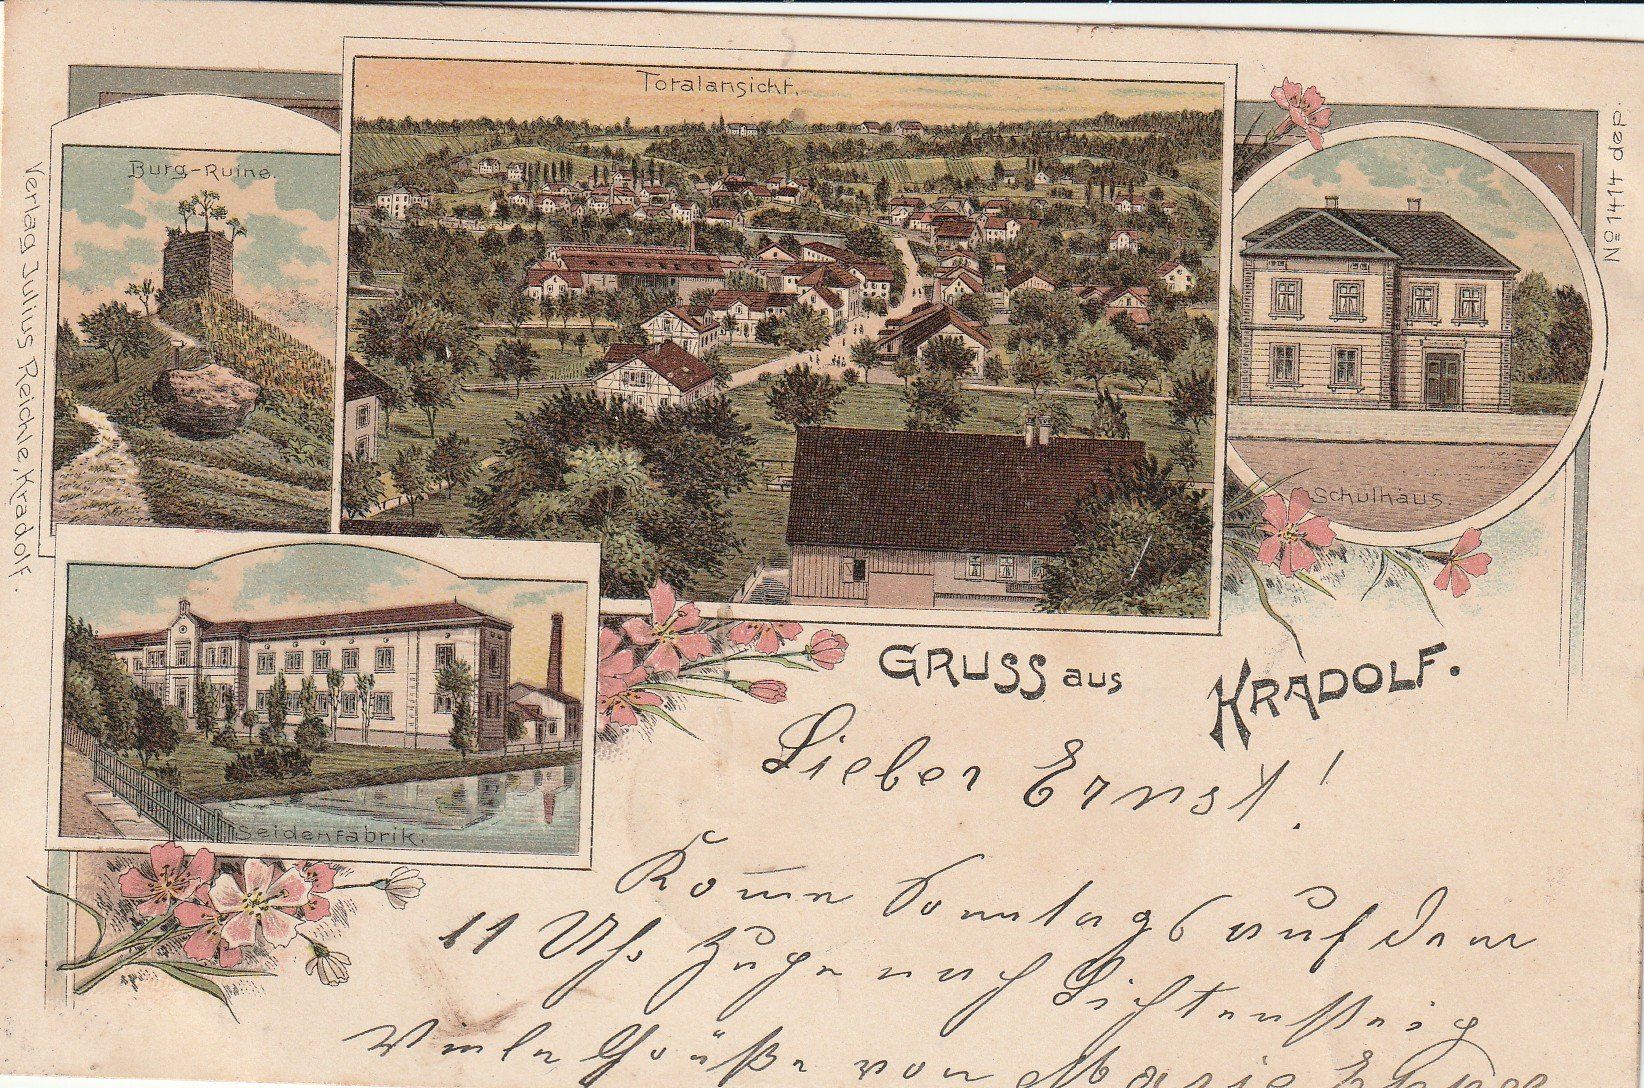 Totalansicht.
Burg-Ruine.
Verlag Julius Reichle, Kradolf.
No 1414 dep.
Schulhaus
Seidenfabrik.
GRUSS aus KRADOLF.
Lieber Ernst!
Kom̅e Sonntags auf dem
11 Uhr Zuge nach Lichtensteig
Viele Grüße von Marie